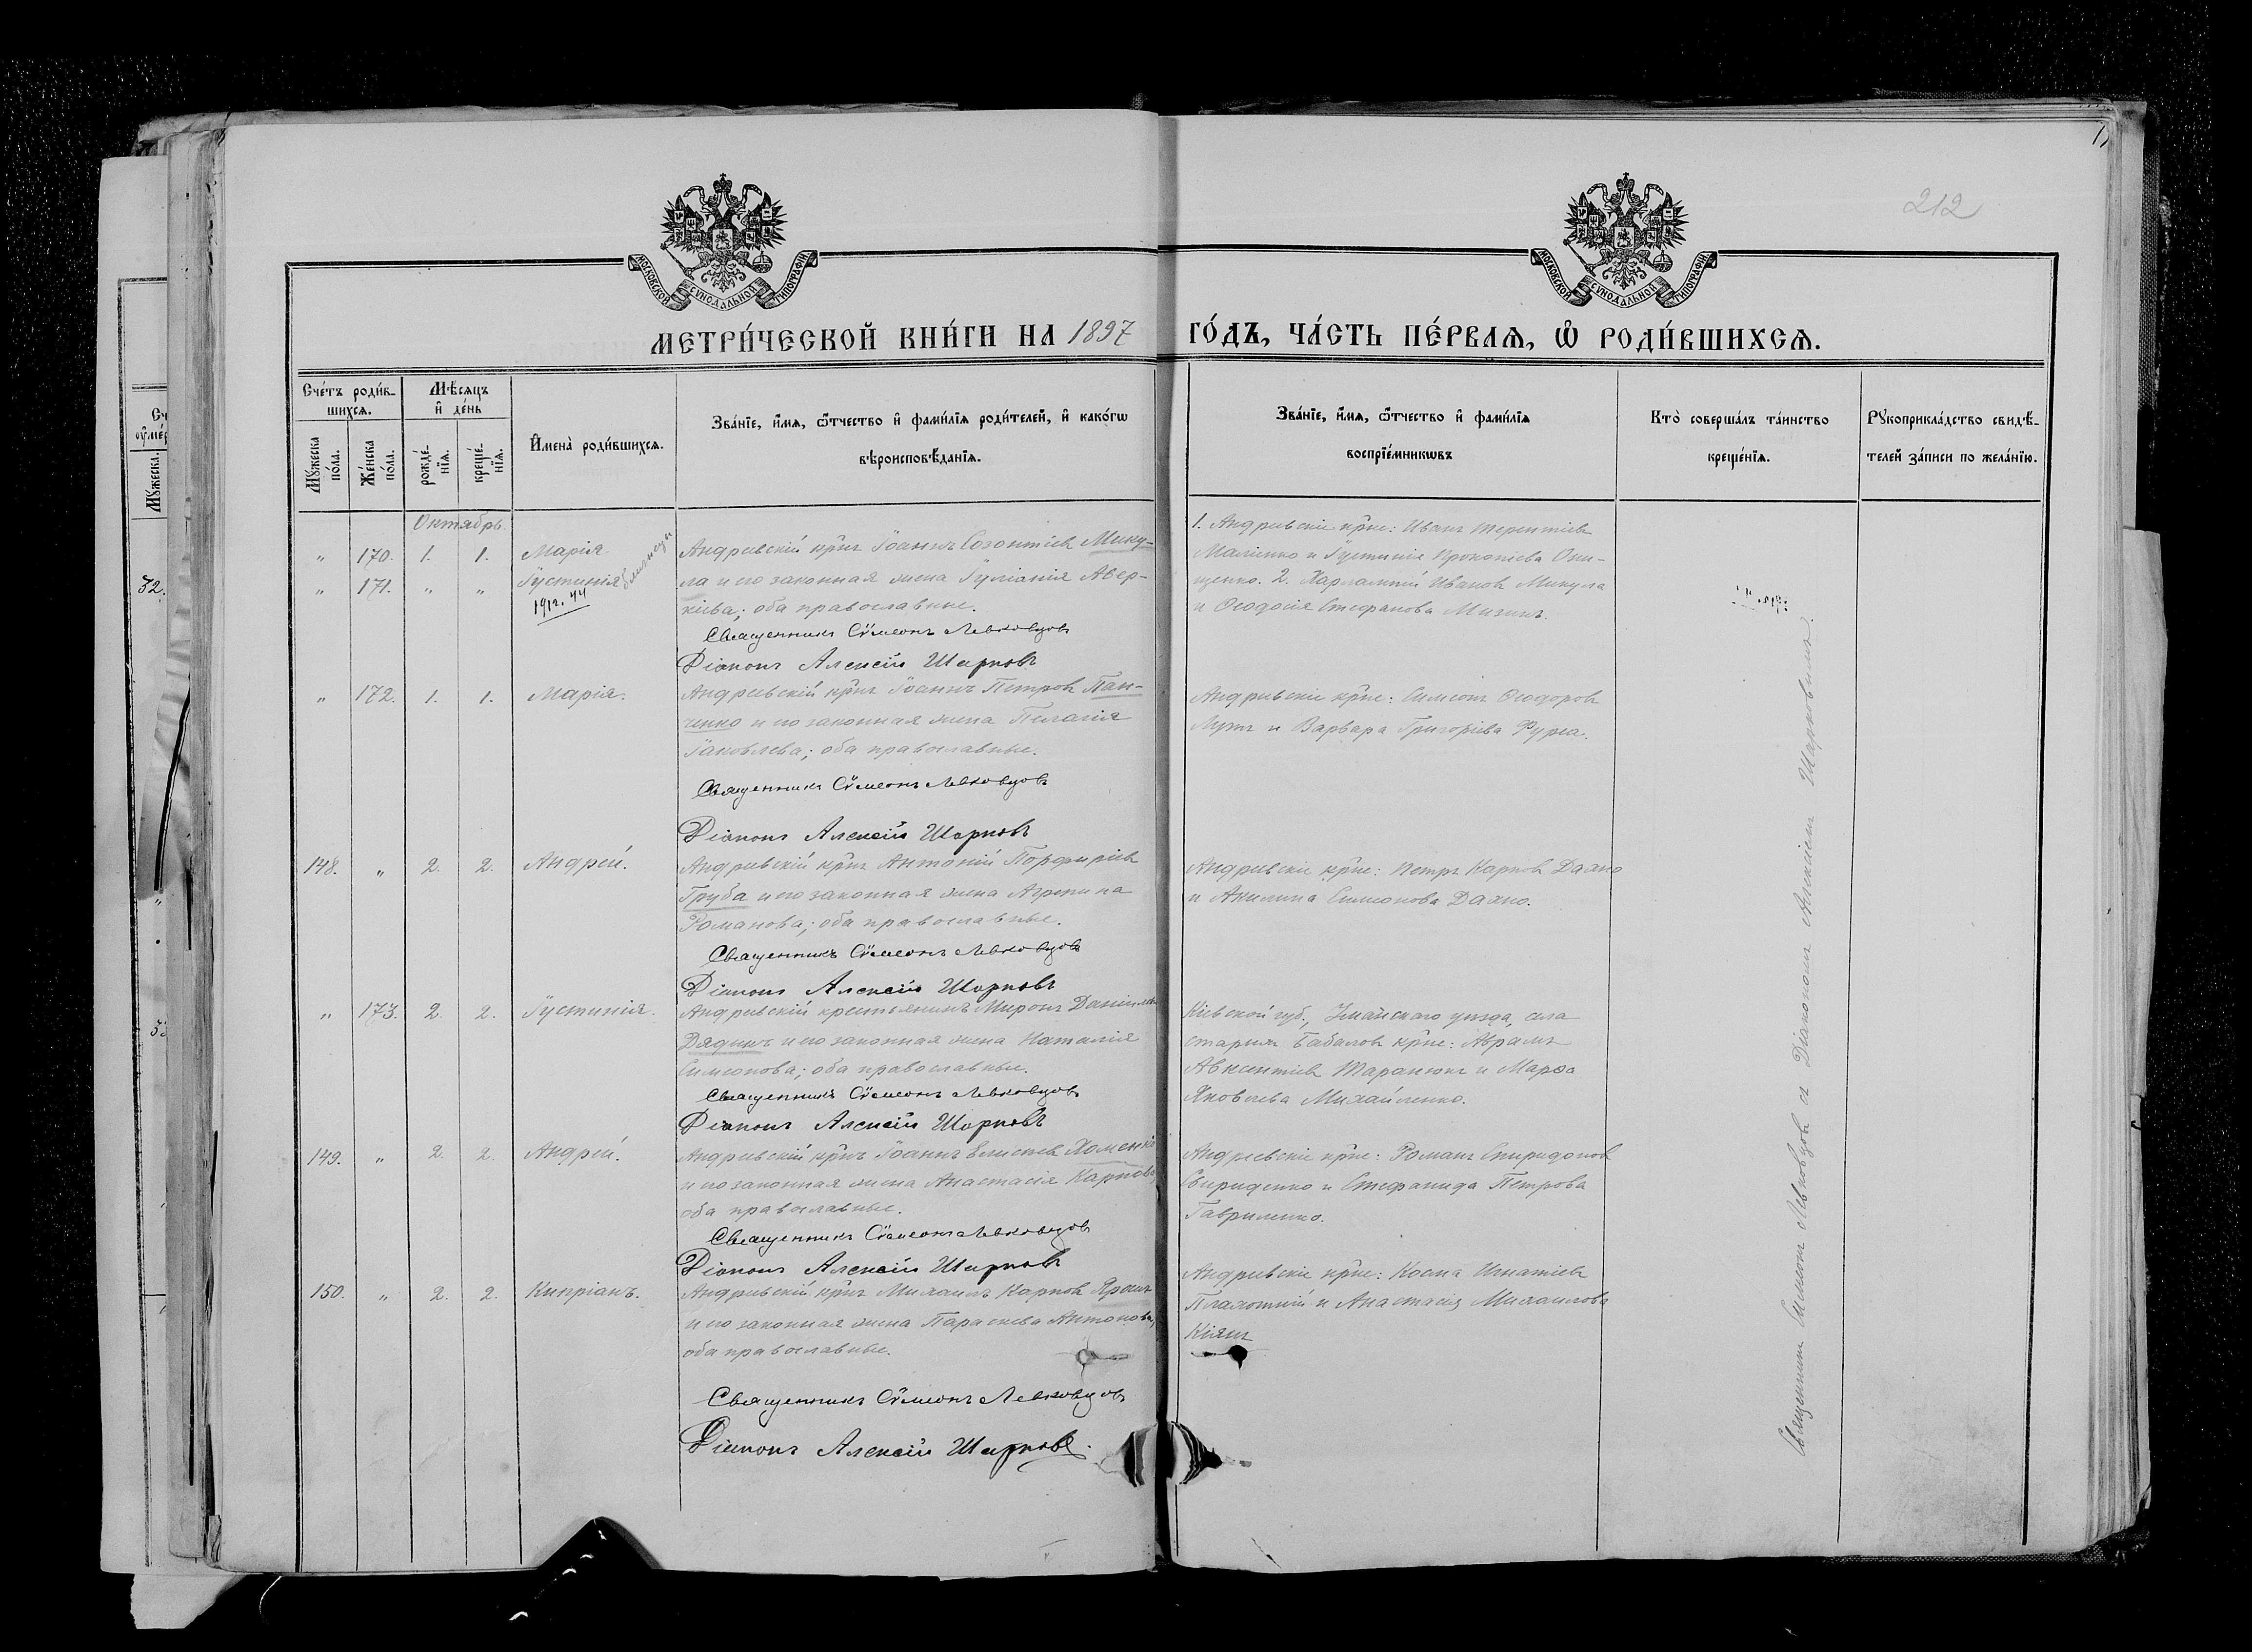 МОСКОВСКОЙ СУНОДАЛЬНОЙ ТИПОГРАФІИ
МОСКОВСКОЙ СУНОДАЛЬНОЙ ТИПОГРАФІИ
212
МЕТРИ́ЧЕСКОЙ КНИ́ГИ НА 1897 ГО́ДЪ, ЧА́СТЬ ПЕ́РВАѦ, Ѡ҆ РОДИ́ВШИХСѦ.
Сче́тъ роди́в-
шихсѧ.
Мѣ́сѧцъ
и҆ де́нь
Мꙋ́жеска
по́ла.
Же́нска
по́ла.
рожде́-
нїѧ.
креще́-
нїѧ.
И҆мена̀ роди́вшихсѧ.
Зва́нїе, и҆́мѧ, ѻ҆́тчество и҆ фами́лїѧ роди́телей, и҆ како́гѡ
вѣроисповѣ́данїѧ.
Зва́нїе, и҆́мѧ, ѻ҆́тчество и҆ фами́лїѧ
воспрїе́мникѡвъ
Кто̀ соверша́лъ та́инство
креще́нїѧ.
Рꙋкоприкла́дство свидѣ́-
телей за́писи по жела́нїю.
Октябрь.
" 170. 1. 1. Марія
" 171. " " Іустинія близнецы
1912. 44
Андреевскій кр̃нъ Іоаннъ Созонтіевъ Мику-
ла и его законная жена Іуліанія Авер-
кіева; оба православные.
Священникъ Сѷмеонъ Левковцовъ
Діаконъ Алексій Шарковъ
1. Андреевскіе кр̃не: Иванъ Терентіевъ
и Іустинія Прокопіева Они-
щенко. 2. Харлампій Ивановъ Микула
и Ѳеодосія Стефанова
" 172. 1. 1. Марія.
Андреевскій кр̃нъ Іоаннъ Петровъ Пан-
ченко и его законная жена Пелагія
Іаковлева; оба православные.
Священникъ Сѷмеонъ Левковцовъ
Діаконъ Алексій Шарковъ
Андреевскіе кр̃не: Симеонъ Ѳеодоровъ
и Варвара Григоріева
148. " 2. 2. Андрей.
Андреевскій кр̃нъ Антоній Порфиріевъ
Груба и его законная жена Агрепина
Романова; оба православные.
Священникъ Сѷмеонъ Левковцовъ
Діаконъ Алексій Шарковъ
Андреевскіе кр̃не: Петръ Карповъ Дахно
и Акилина Симеонова Дахно.
" 173. 2. 2. Іустинія.
Андреевскій крестьянинъ Миронъ Даніиловъ
Дядикъ и его законная жена Наталія
Симеонова; оба православные.
Священникъ Сѷмеонъ Левковцовъ
Діаконъ Алексій Шарковъ
Кіевской губ., Уманскаго уѣзда, села
Старыхъ Бабановъ кр̃не: Аврамъ
Авксентіевъ Таранюкъ и Марѳа
Яковлева Михайленко.
149. " 2. 2. Андрей.
Андреевскій кр̃нъ Іоаннъ Елисеевъ Хоменко
и его законная жена Анастасія Карпова,
оба православные.
Священникъ Сѷмеонъ Левковцовъ
Діаконъ Алексій Шарковъ
Андреевскіе кр̃не: Романъ Спиридоновъ
Свириденко и Стефанида Петрова
Гавриленко.
150. " 2. 2. Кипріанъ.
Андреевскій кр̃нъ Михаилъ Карповъ
и его законная жена Параскева Антонова,
оба православные.
Священникъ Сѷмеонъ Левковцовъ
Діаконъ Алексій Шарковъ.
Андреевскіе кр̃не: Косма Игнатіевъ
Плахотній и Анастасія Михаилова
Кіянъ
Священникъ Симеонъ Левковцовъ съ Діакономъ Алексіемъ Шарковымъ.